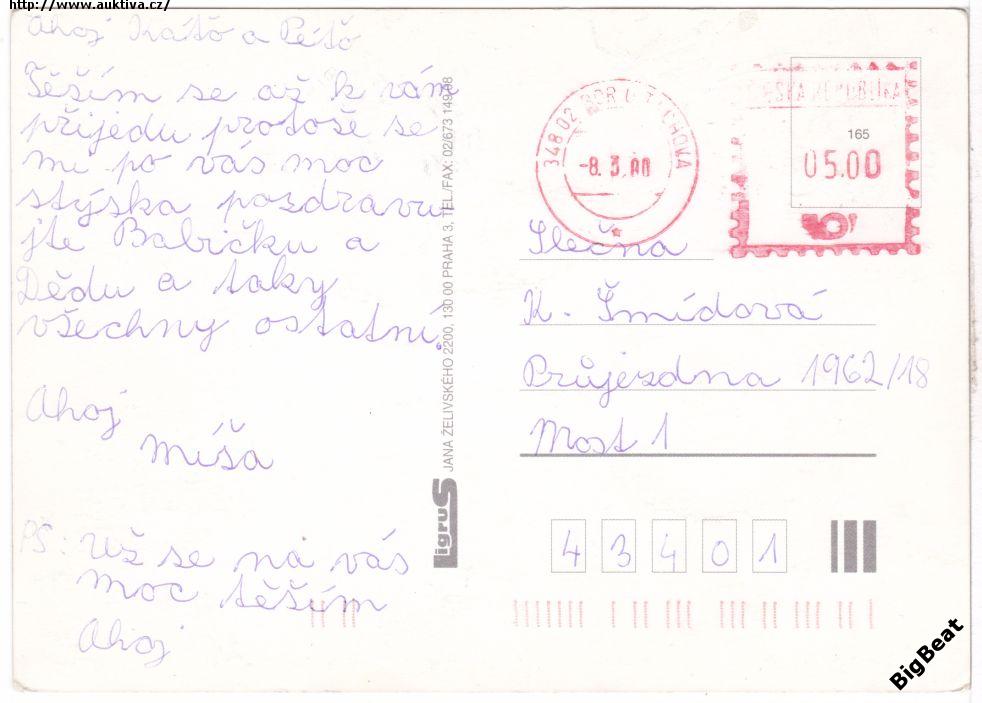 http://www.auktiva.cz/
Ahoj Káťo a Péťo
Těším se až k vám
přijedu protože se
mi po vás moc
stýska pozdravu
jte Babičku a
Dědu a taky
všechny ostatní.
Ahoj
Míša
PS: Už se na vás
moc těším
Ahoj
Ligrus JANA ŽELIVSKÉHO 2200, 130 00 PRAHA 3, TEL./FAX: 02/673
348 02 BOR U TACHOVA
-8. 3. 00
ČESKÁ REPUBLIKA
165
05.00
Slečna
K. Šmídová
Průjezdna 1962/18
Most 1
43401
BigBeat